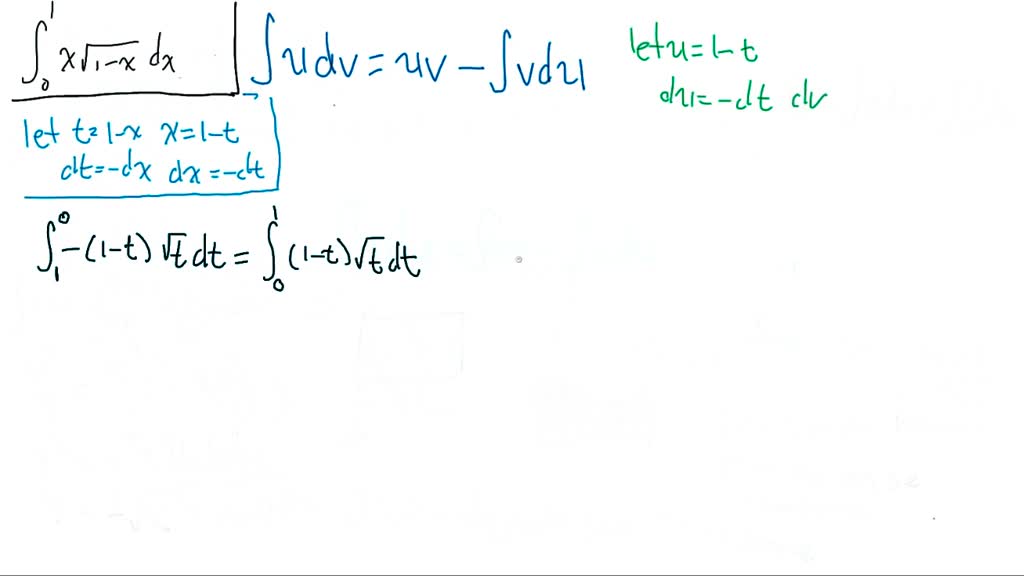 ∫₀¹ x√(1-x) dx
∫udv = uv - ∫vdu
let u = 1-t
du = -dt dv
let t = 1-x x = 1-t
dt = -dx dx = -dt
∫₁⁰ -(1-t) √t dt = ∫₀¹ (1-t)√t dt